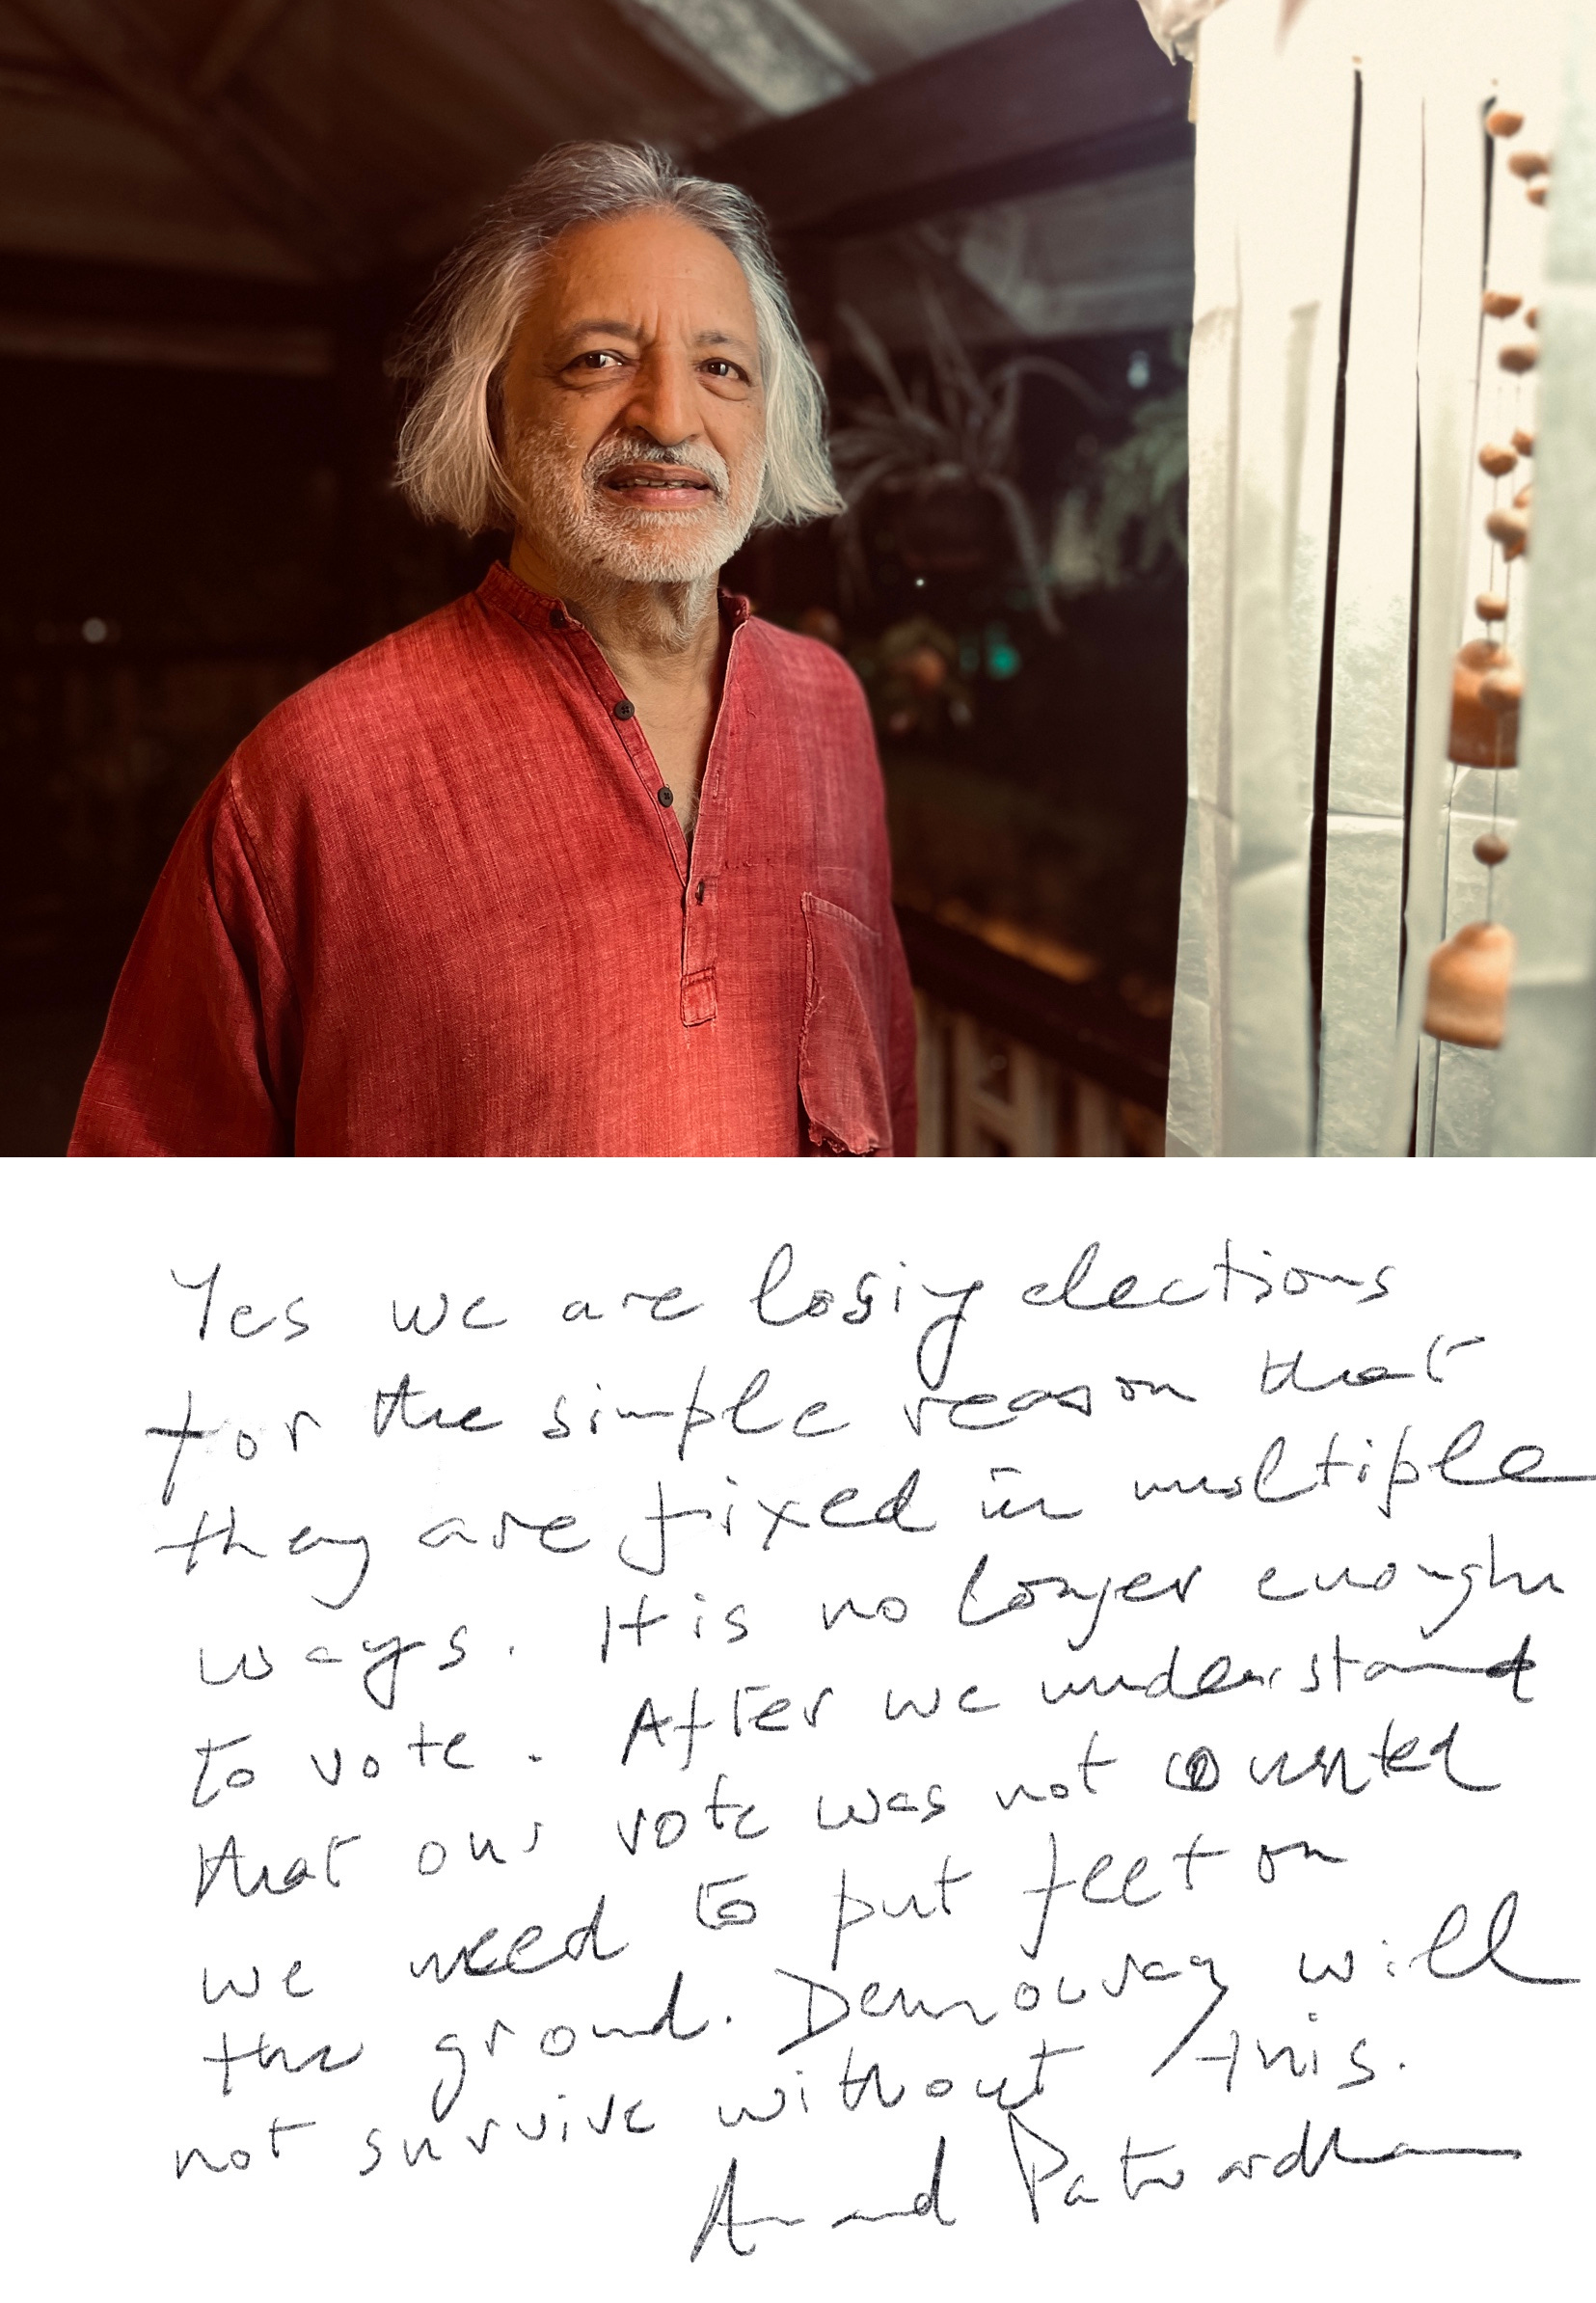 Yes we are losing elections
for the simple reason that
they are fixed in multiple
ways. It is no longer enough
to vote. After we understand
that our vote was not counted
we need to put feet on
the ground. Democracy will
not survive without this.
Anand Patwardhan